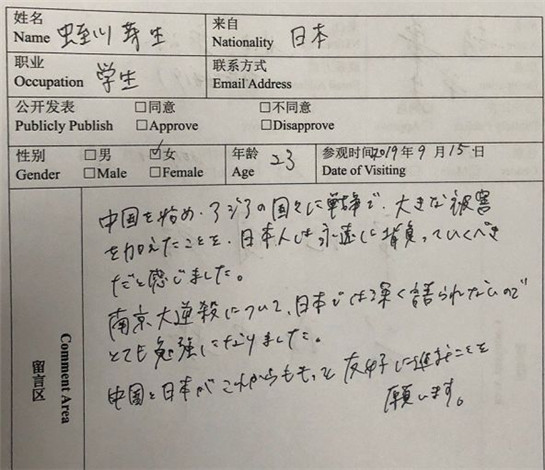 姓名 来自
Name 蛭川 芽生 Nationality 日本
职业 联系方式
Occupation 学生 Email Address
公开发表 □同意 □不同意
Publicly Publish □Approve □Disapprove
性别 □男 ☑女 年龄 23 参观时间2019年9月15日
Gender □Male □Female Age Date of Visiting
留言区
Comment Area
中国を始め、アジアの国々に戦争で、大きな被害
を加えたことを、日本人は永遠に背負っていくべき
だと感じました。
南京大逆殺について、日本では深く語られないので
とても勉強になりました。
中国と日本がこれからももっと友好に進むことを
願います。